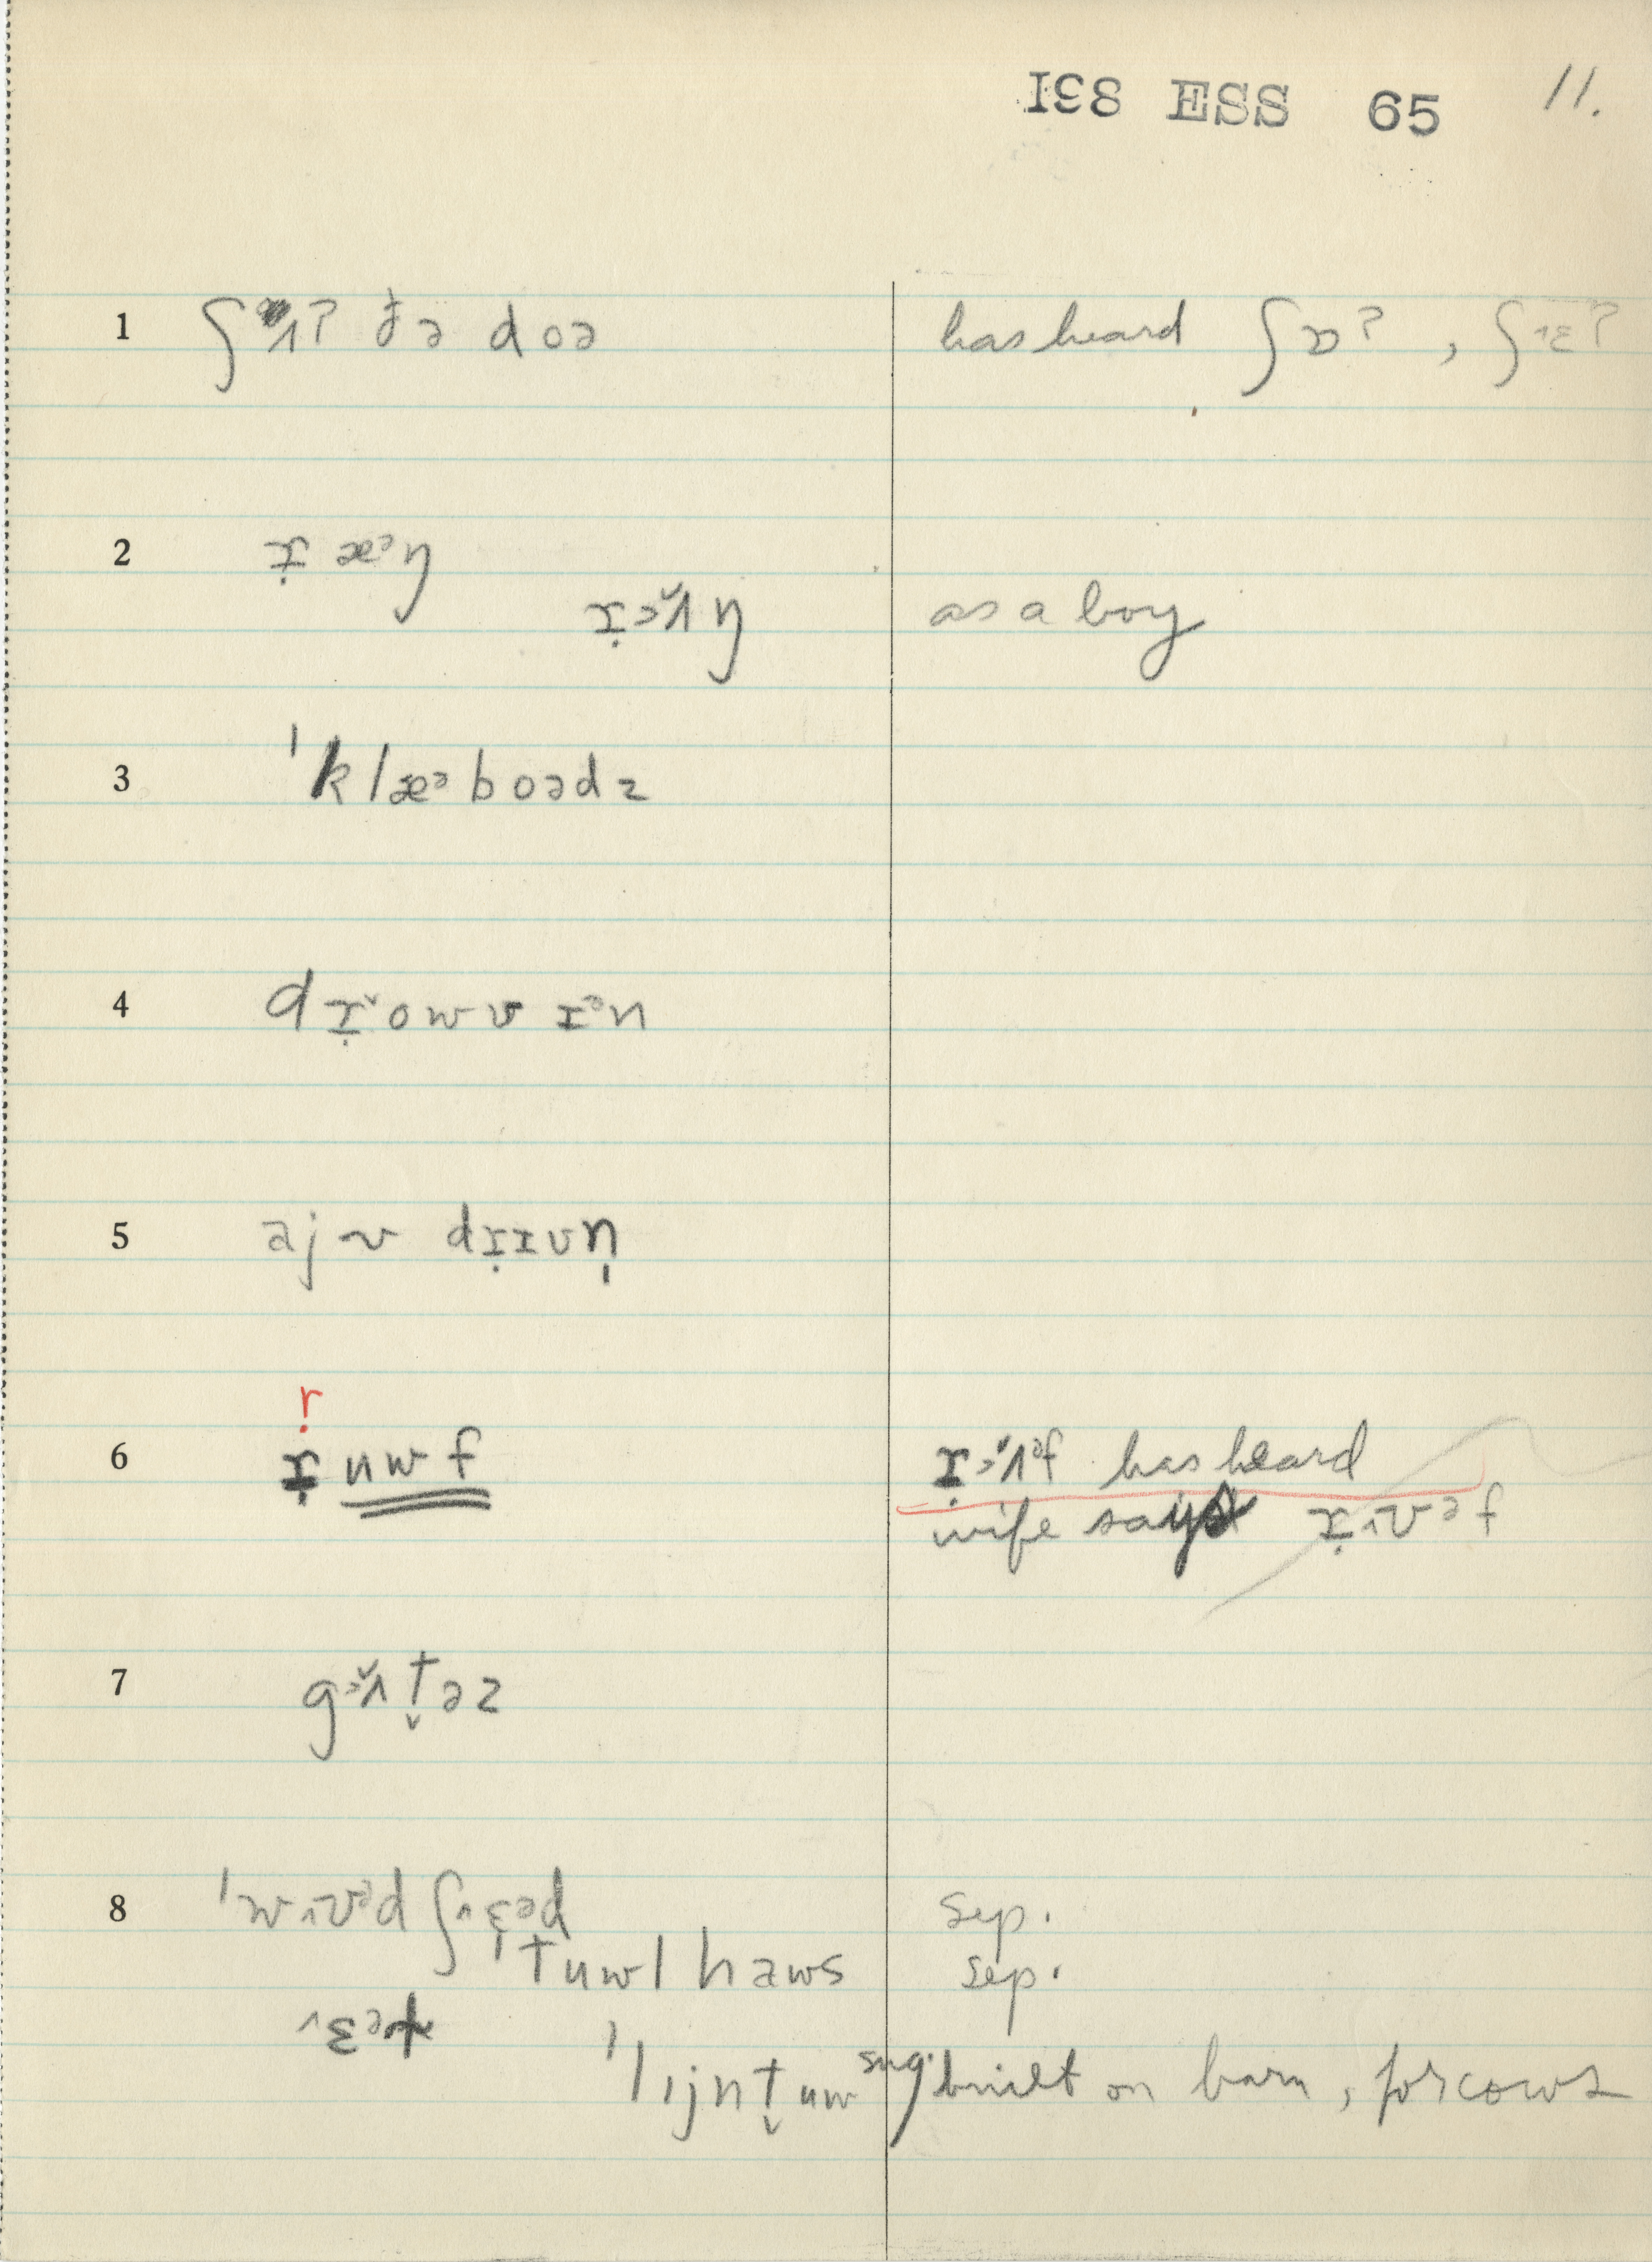 I98 ESS 65 11.
1 ʃʌʔ ðə doə has heard ʃɒʔ , ʃɛʔ
2 ɪ̣ æᵊŋ
ɪ̣ɔʌŋ as a boy
3 ˈklæᵊboədz
4 dɪ̣ˇowv ɪᵊn
5 ajv dɪ̣ɪvn̩
r
6 ɪ̣uwf ɪ̣ɔʌᵊf has heard
wife says ɪ̣ʊᵊf
7 gɔʌt̬əz
8 ˈwʊᵊd ʃɛᵊd sep.
ˈtuwl haws sep.
ˈlijnt̬uw sug. built on barn, for cows